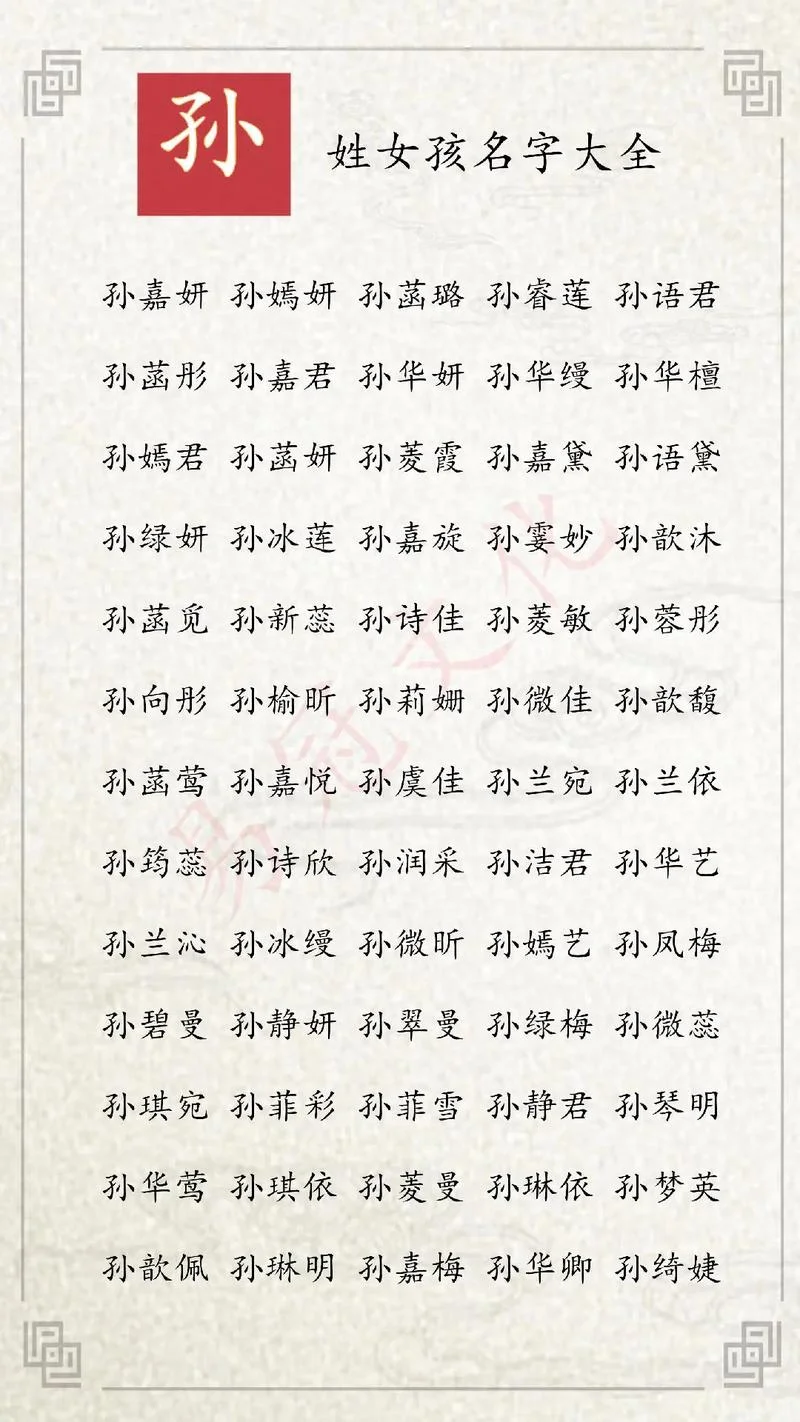 孙 姓女孩名字大全
孙嘉妍 孙嫣妍 孙菡璐 孙睿莲 孙语君
孙菡彤 孙嘉君 孙华妍 孙华缦 孙华檀
孙嫣君 孙菡妍 孙菱霞 孙嘉黛 孙语黛
孙绿妍 孙冰莲 孙嘉旋 孙霎妙 孙歆沐
孙菡觅 孙新蕊 孙诗佳 孙菱敏 孙蓉彤
孙向彤 孙榆昕 孙莉姗 孙微佳 孙歆馥
孙菡莺 孙嘉悦 孙虞佳 孙兰宛 孙兰依
孙筠蕊 孙诗欣 孙润采 孙洁君 孙华艺
孙兰沁 孙冰缦 孙微昕 孙嫣艺 孙凤梅
孙碧曼 孙静妍 孙翠曼 孙绿梅 孙微蕊
孙琪宛 孙菲彩 孙菲雪 孙静君 孙琴明
孙华莺 孙琪依 孙菱曼 孙琳依 孙梦英
孙歆佩 孙琳明 孙嘉梅 孙华卿 孙绮婕
易冠文化